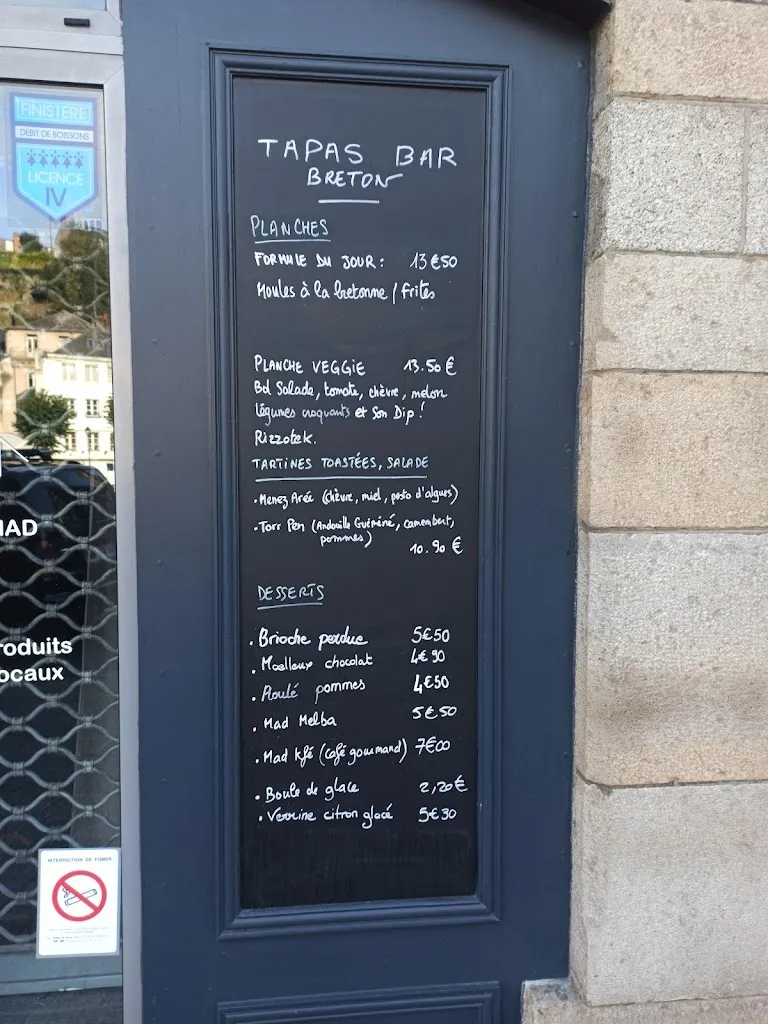 FINISTÈRE
DEBIT DE BOISSONS
LICENCE
IV
TAPAS BAR
BRETON
PLANCHES
FORMULE DU JOUR : 13€50
Moules à la bretonne / frites
PLANCHE VEGGIE 13.50 €
Bol Salade, tomate, chèvre, melon
légumes croquants et Son Dip !
Rizzotek.
TARTINES TOASTÉES, SALADE
• Menez Aréé (chèvre, miel, pesto d'algues)
• Torr Pen (Andouille Guéméné, camembert,
pommes)
10.90 €
DESSERTS
• Brioche perdue 5€50
• Moelleux chocolat 4€90
• Roulé pommes 4€50
• Mad Melba 5€50
• Mad Kfé (café gourmand) 7€00
• Boule de glace 2,20€
• Verrine citron glacé 5€30
MAD
roduits
ocaux
INTERDICTION DE FUMER